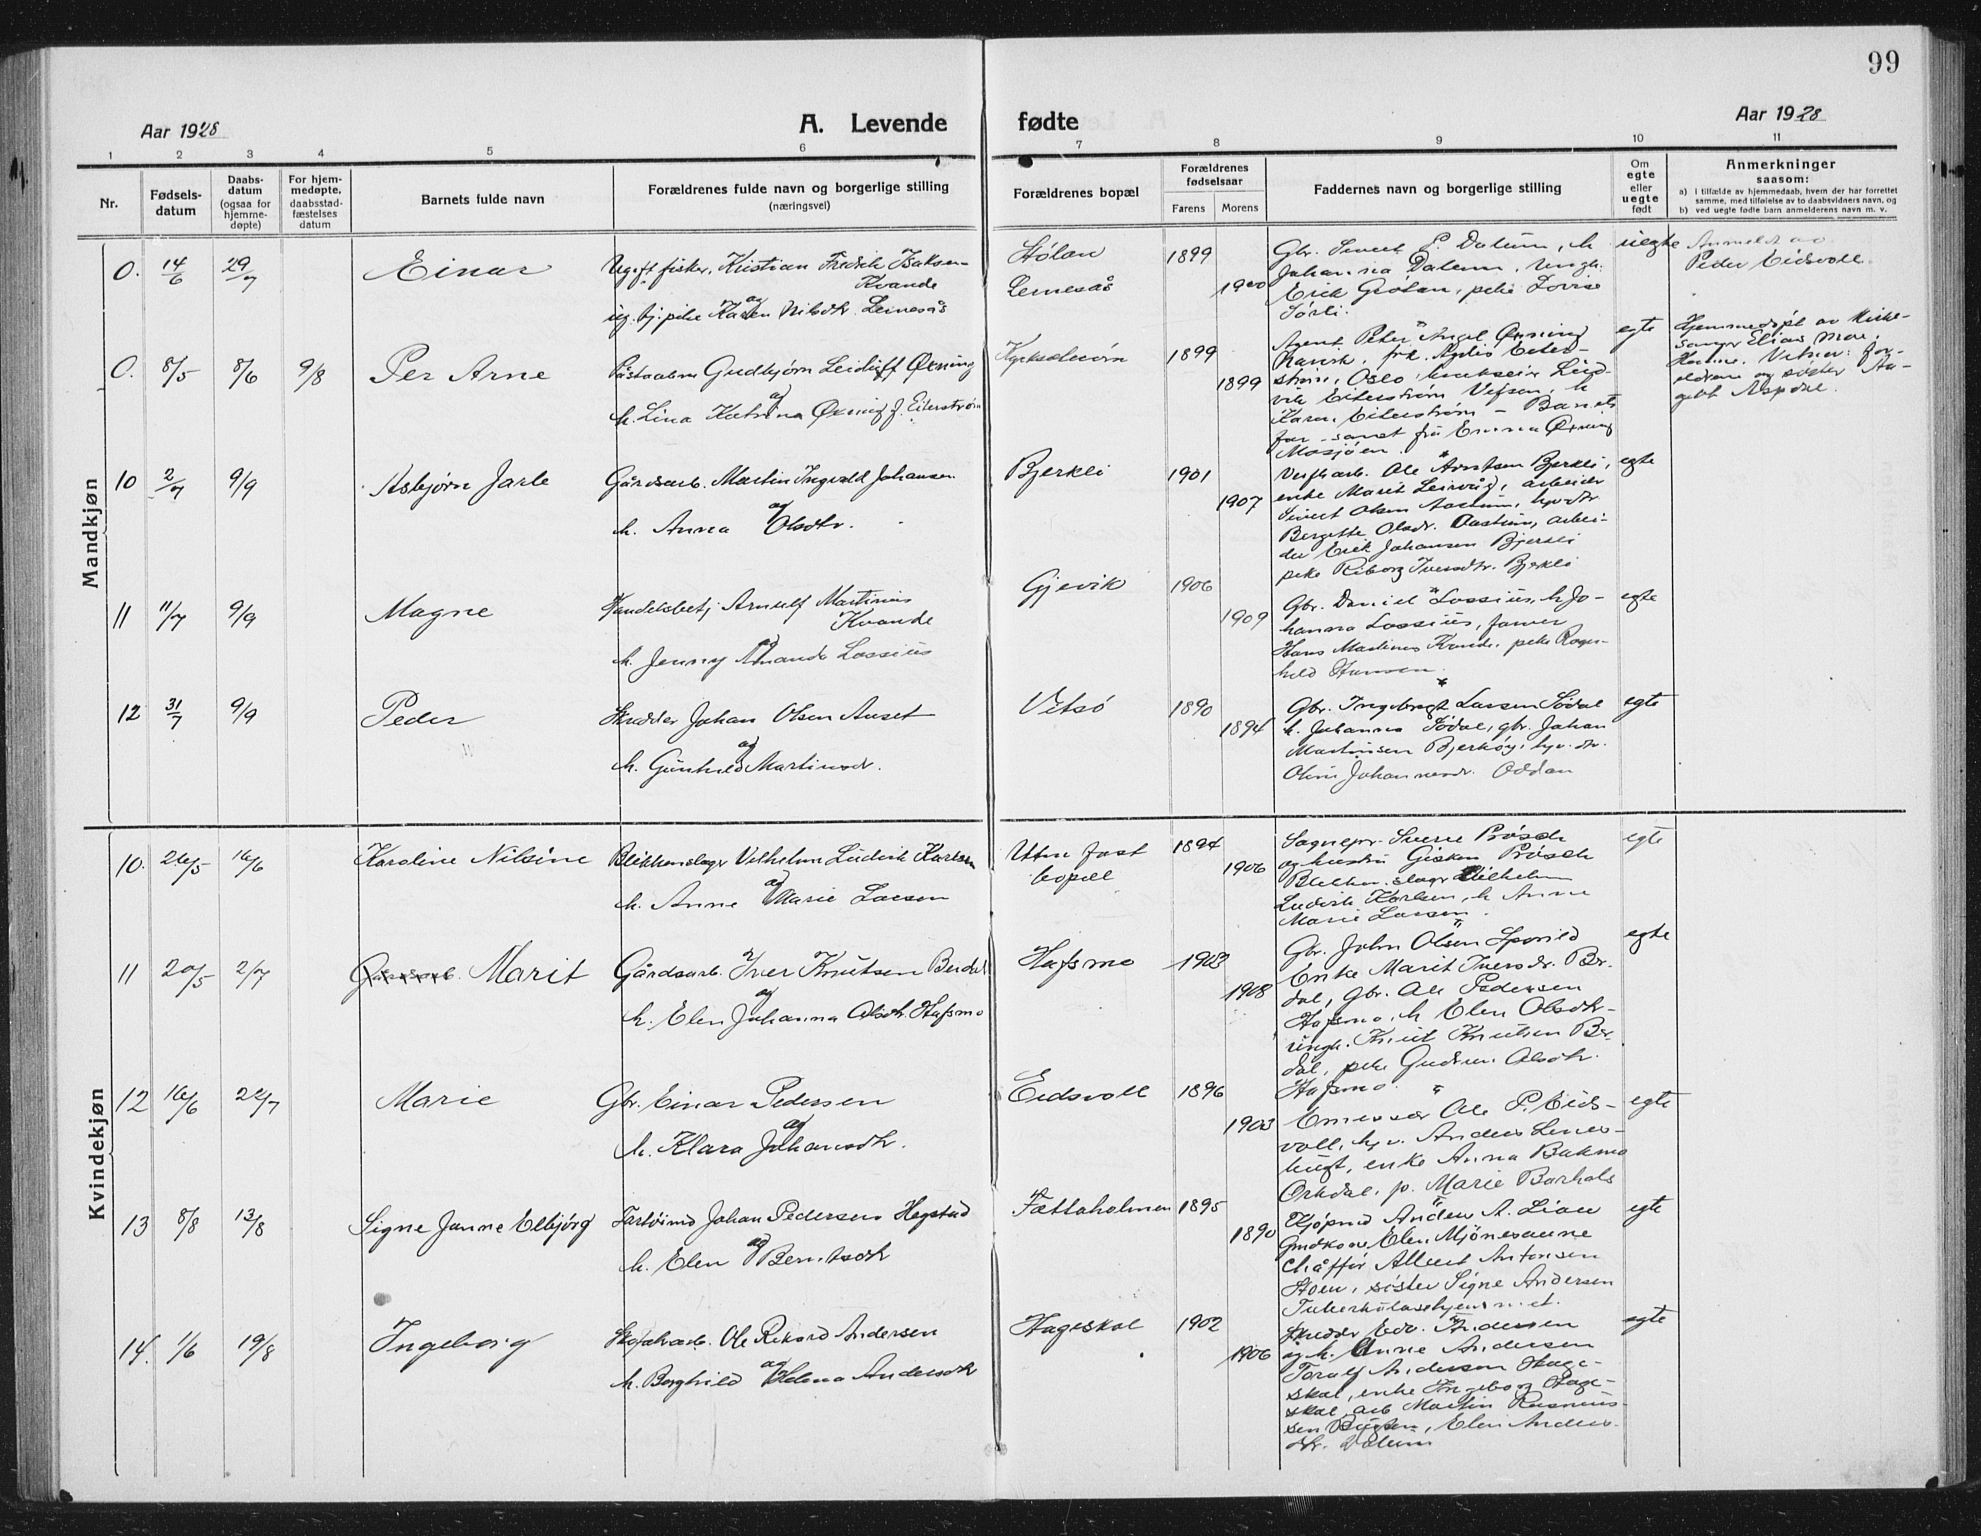 99
Aar 1928
A. Levende fødte
Aar 1928
1 2 3 4 5 6 7 8 9 10 11
Nr.
Fødsels-
datum
Daabs-
datum
(ogsaa for
hjemme-
døpte)
For hjem-
medøpte,
daabsstad-
fæstelses
datum
Barnets fulde navn
Forældrenes fulde navn og borgerlige stilling
(næringsvei)
Forældrenes bopæl
Forældrenes
fødselsaar
Farens Morens
Faddernes navn og borgerlig stilling
Om
egte
eller
uegte
født
Anmerkninger
saasom:
a) I tilfælde av hjemmedaab, hvem der har forrettet
samme, med tilføielse av to daabsvidners navn, og
b) ved uegte fødte barn anmelderens navn m. v.
Mandkjøn
0. 14/6 29/7 Einar
Ugift fisker, Kristian Fredrik Isaksen
Kvande
og
ug. tj. pike Karen Nilsdtr. Leinesås
Stølan
Leinesås
1899
1900
Gbr. Sivert P. Dalum, h.
Johanna Dalum, ungk.
Erik Grøtan, pike Lovise
Sørli.
uegte
Anmeldt av
Peder Eidsvoll.
0. 8/5 8/6 9/8 Per Arne
Gudbjørn Leidulf Øxning
og
h. Lina Katrina Øxning f. Eiterstrøm
1899
1899
Agent Peter Angel Øxning
strøm, Oslo,
Eiterstrøm Vefsen, h.
Karen Eiterstrøm – Barnets
far – samt fru Emma Øxning
Mosjøen.
egte
Hjemmedøpt av Kirke-
sanger Elias Moe,
Vitner: for-
eldrene og søster Aa-
got Aspdal.
10 2/7 9/9 Asbjørn Jarle
Gårdsarb. Martin Ingvald Johansen
og
h. Anna Olsdtr.
Bjerkli
1901
1907
Ole Arntsen Bjerkli,
enke Marit Leirvåg, arbeider
Sivert Olsen Aastum,
Bergitte Olsdr. Aastum, arbei-
der Erik Johansen Bjerkli
pike Riborg Iversdtr. Bjerkli
egte
11 11/7 9/9 Magne
Handelsbetj. Arnulf Martinus
Kvande
og
h. Jenny Amanda Lossius
Gjevik
1906
1909
Gbr. Daniel Lossius, h. Jo-
hanna Lossius,
Hans Martinus Kvande, pike Ragn-
hild Hansen.
egte
12 31/7 9/9 Peder
Skredder Johan Olsen Auset
og
h. Gunhild Martinsdr.
Vitsø
1890
1894
Gbr. Ingebrigt Larsen Sødal
h. Johanna Sødal, gbr. Johan
Martinsen Bjerkøy,
Johannesdr. Oddan
egte
Kvindekjøn
10. 26/5 16/6 Karoline Nilsine
Blikkenslager Vilhelm Ludvik Karlsen
og
h. Anne Marie Larsen
Uten fast
bopæl
1894
1906
Sognepr. Sverre Prøsch
og hustru Gisken Prøsch
Blikkenslager Vilhelm
Ludvik Karlsen, h. Anne
Marie Larsen.
egte
11 20/5 2/7 Gårdsarb. Marit
Gårdsarb. Iver Knutsen Berdal
og
h. Elen Johanna Olsdtr. Hafsmo
Hafsmo
1903
1908
Gbr. John Olsen Sporild
Enke Marit Iversdr. Ber-
dal, Gbr. Ole Pedersen
Hafsmo, h. Elen Olsdtr.
ungk. Knut Knutsen Ber-
dal, pike Gudrun Olsdtr.
Hafsmo.
egte
12 16/6 22/7 Marie
Gbr. Einar Pedersen
og
h. Klara Johansdtr.
Eidsvoll
1896
1903
Ole P. Eids-
voll, Anders Leines-
hugt, enke Anna Bakmo
Orkdal, p. Marie Barhals
egte
13 8/8 13/8 Signe Janne Elbjørg
Johan Pedersen Hegstad
og
h. Elen Berntsdtr
Fætteholmen
1895
1890
Kjøpmd Anders A. Lian
Gmdkone Elen Mjønesaune
Chåffør Albert Antonsen
Stoen, søster Signe Andersen
Tuberkulosehjemmet.
egte
14. 1/6 19/8 Ingeborg
Skofabarb. Ole Rikard Andersen
og
h. Borghild Helena Andersdtr
Hageskal
1902
1906
Skredder Edv. Andersen
og h. Anne Andersen
Toralf Andersen Hage-
skal, enke Ingeborg Hage-
skal, arb. Martin Rasmus-
sen Bugten, Elen Anders-
dtr. Dalum
egte